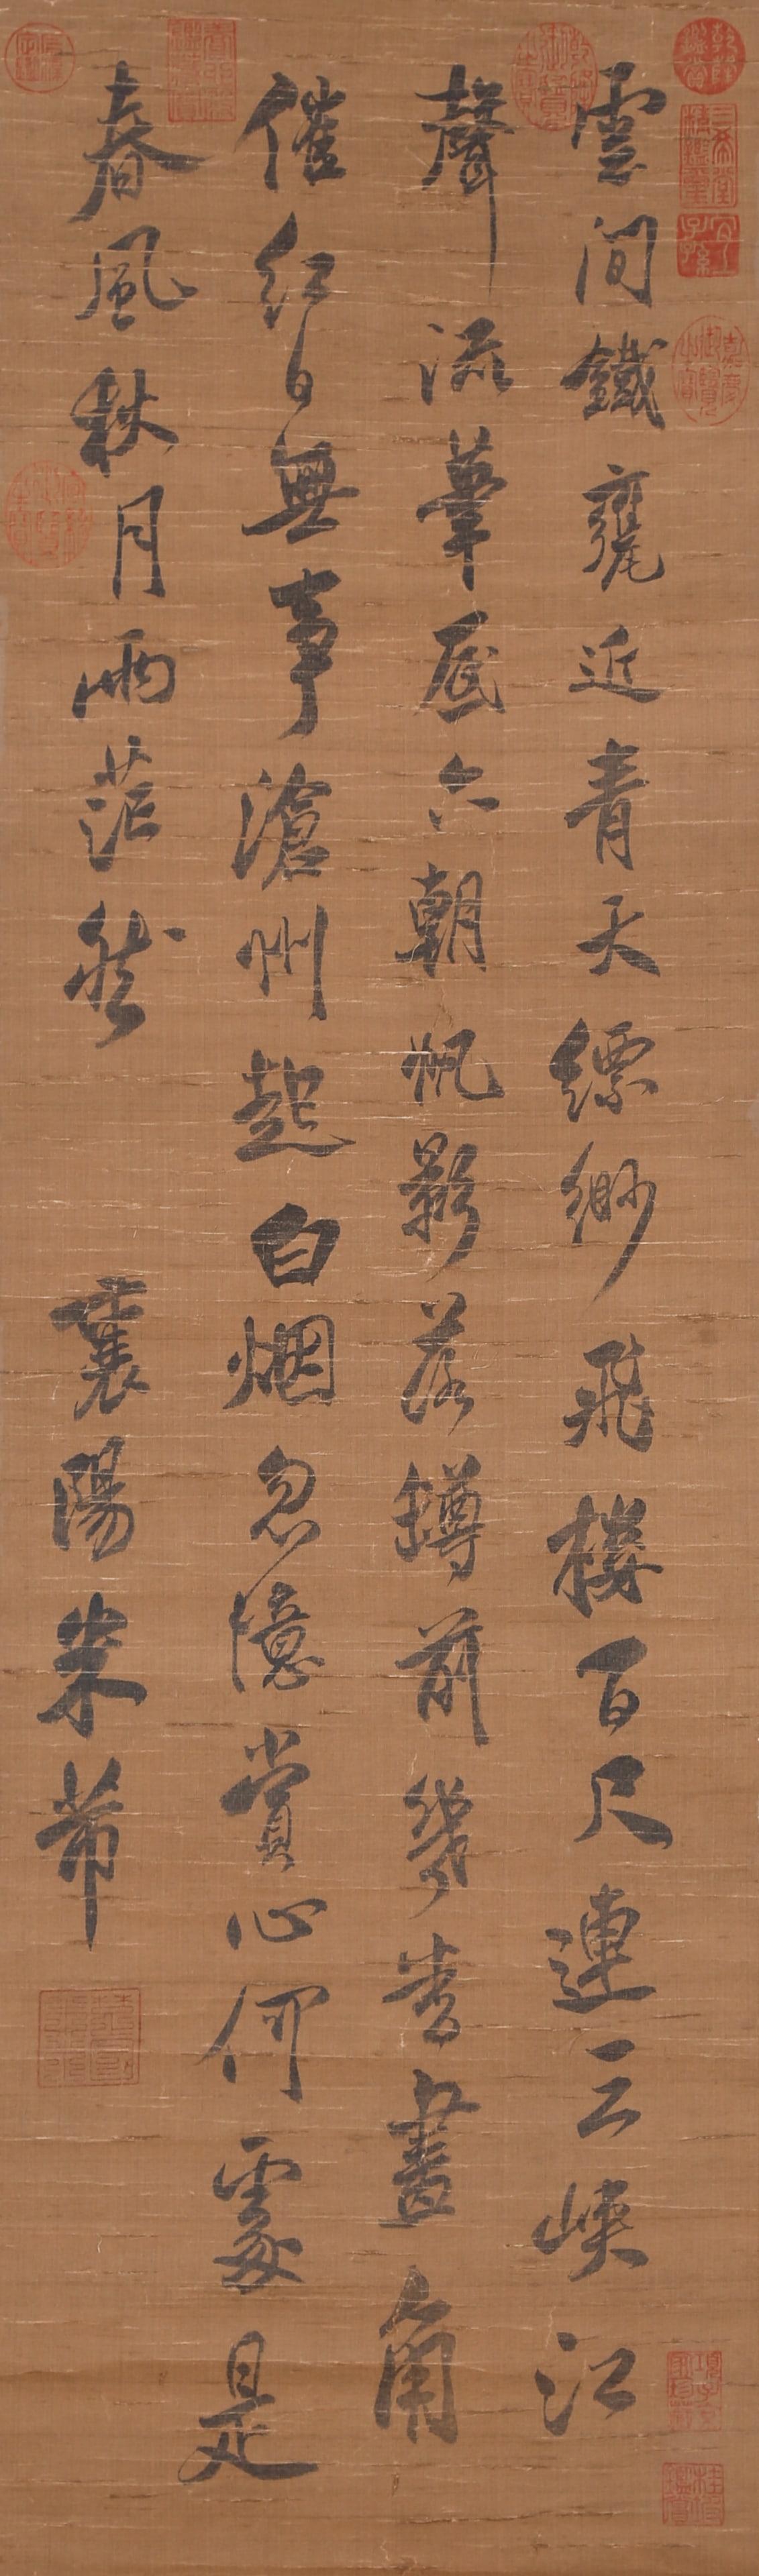 雲間鐵甕近青天縹緲飛樓百尺連三峽江
聲流筆底六朝帆影落鐏前幾番畫角
催紅日無事滄州起白烟忽憶賞心何處是
春風秋月兩茫然
襄陽米芾